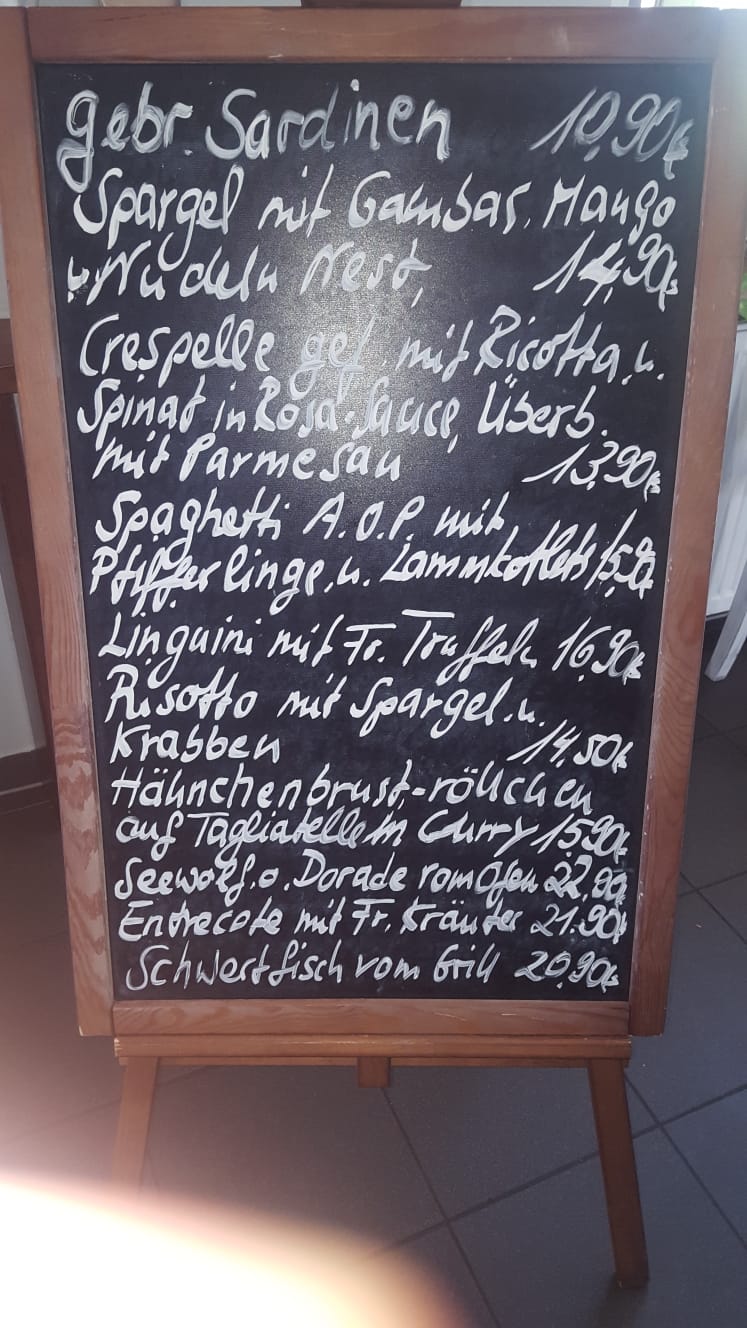 gebr. Sardinen 10,90€
Spargel mit Gambas, Mango
u. Nudeln Nest, 14,90€
Crespelle gef. mit Ricotta u.
Spinat in Rosa-Sauce, Überb.
mit Parmesan 13,90€
Spaghetti A.O.P. mit
Pfifferlinge u. Lammkotlets 15,90
Linguini mit Fr. Truffeln 16,90€
Risotto mit Spargel u.
Krabben 14,50€
Hähnchenbrust-röllchen
auf Tagliatelle in Curry 15,90€
Seewolf o. Dorade vom Ofen 22,90€
Entrecote mit Fr. Kräuter 21.90€
Schwertfisch vom Grill 20,90€